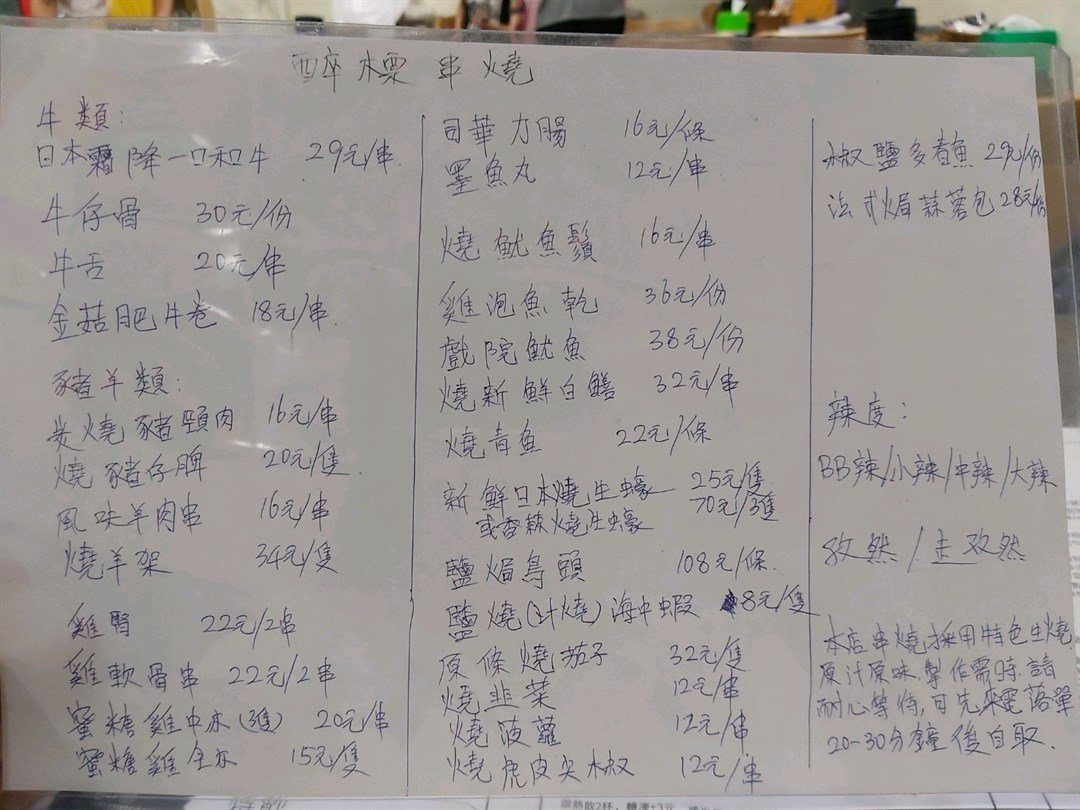 醉木栗 串燒
牛類：
日本霜降一口和牛 29元/串
牛仔骨 30元/份
牛舌 20元/串
金菇肥牛卷 18元/串
豬羊類：
炭燒豬頸肉 16元/串
燒豬仔脾 20元/隻
風味羊肉串 16元/串
燒羊架 34元/隻
雞腎 22元/2串
雞軟骨串 22元/2串
蜜糖雞中亦(3隻) 20元/串
蜜糖雞全亦 15元/隻
司華力腸 16元/條
墨魚丸 12元/串
燒魷魚鬚 16元/串
雞泡魚乾 36元/份
戲院魷魚 38元/份
燒新鮮白鱔 32元/串
燒青魚 22元/條
新鮮日本燒生蠔 25元/隻
或香蒜燒生蠔 70元/3隻
鹽焗烏頭 108元/條
鹽燒(汁燒)海中蝦 8元/隻
原條燒茄子 32元/隻
燒韭菜 12元/串
燒菠蘿 12元/串
燒虎皮尖椒 12元/串
椒鹽多春魚 29元/份
法式焗蒜蓉包 28元/份
辣度：
BB辣/小辣/中辣/大辣
孜然/走孜然
本店串燒採用特色生燒
原汁原味,製作需時.請
耐心等待,可先來電落單
20-30分鐘後自取.